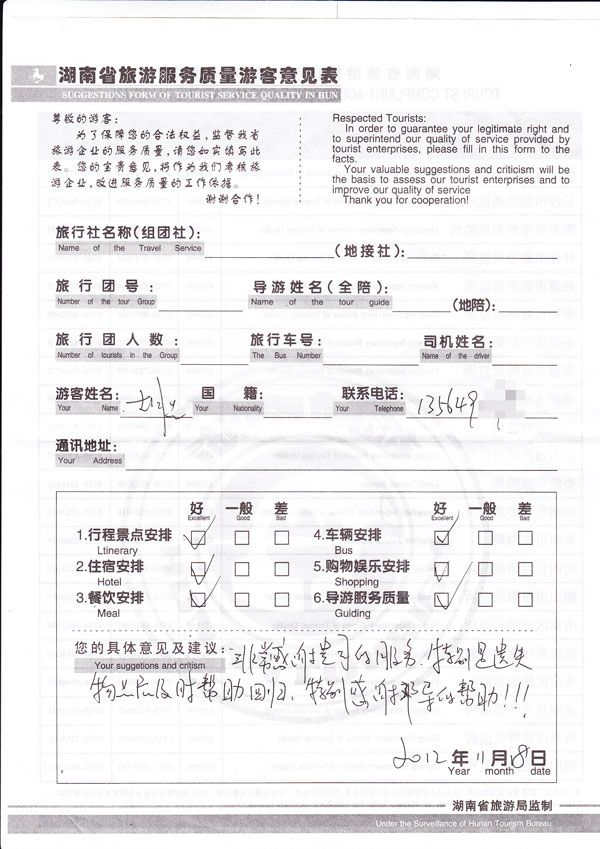 湖南省旅游服务质量游客意见表
SUGGESTIONS FORM OF TOURIST SERVICE QUALITY IN HUN
尊敬的游客：
为了保障您的合法权益，监督我省
旅游企业的服务质量，请您如实填写此
表。您的宝贵意见，将作为我们考核旅
游企业，改进服务质量的工作依据。
谢谢合作！
Respected Tourists:
In order to guarantee your legitimate right and
to superintend our quality of service provided by
tourist enterprises, please fill in this form to the
facts.
Your valuable suggestions and criticism will be
the basis to assess our tourist enterprises and to
improve our quality of service
Thank you for cooperation!
旅行社名称(组团社)： (地接社)：
Name of the Travel Service
旅行团号： 导游姓名(全陪)： (地陪)：
Number of the tour Group Name of the tour guide
旅行团人数： 旅行车号： 司机姓名：
Number of tourists in the Group The Bus Number Name of the driver
游客姓名： 国籍： 联系电话： 135649
Your Name Your Nationality Your Telephone
通讯地址：
Your Address
好 一般 差 好 一般 差
Excellent Good Bad Excellent Good Bad
1.行程景点安排 4.车辆安排
Ltinerary Bus
2.住宿安排 5.购物娱乐安排
Hotel Shopping
3.餐饮安排 6.导游服务质量
Meal Guiding
您的具体意见及建议： 非常感谢贵司的服务.特别是遗失
Your suggetions and critism
物品后及时帮助回归.特别感谢邓导的帮助!!!
2012年11月18日
Year month date
湖南省旅游局监制
Under the Surveillance of Hunan Tourism Bureau